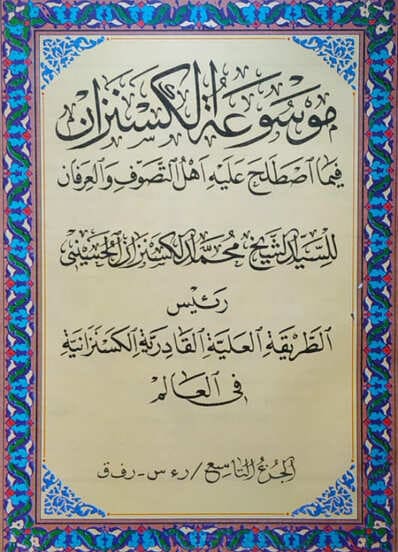 موسوعة الكسنزان
فيما اصطلح عليه أهل التصوف والعرفان
للسيد الشيخ محمد الكسنزان الحسيني
رئيس
الطريقة العلية القادرية الكسنزانية
في العالم
الجزء التاسع / ر ء س - ر ف ق